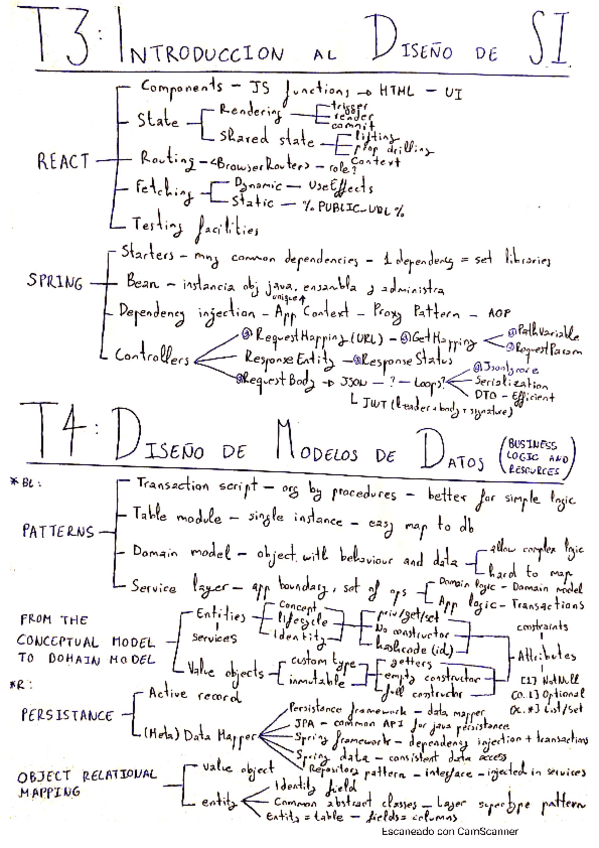 T3: INTRODUCCION AL DISEÑO DE SI.
Components - JS functions → HTML - UI
State
Rendering
trigger
render
commit
Shared state
lifting
prop drilling
Context
REACT
Routing - <BrowserRouter> - role?
Fetching
Dynamic - UseEffects
Static - %PUBLIC_URL%
Testing facilities
SPRING
Starters - mng common dependencies - 1 dependency = set libraries
Bean - instancia obj java, ensambla y administra
unique
Dependency injection - App Context - Proxy Pattern - AOP
Controllers
@RequestMapping (URL) - @GetMapping
@PathVariable
@RequestParam
ResponseEntity - @ResponseStatus
@RequestBody → JSON - ? - Loops?
@JsonIgnore
Serialization
DTO - Efficient
JWT (header + body + signature)
T4: DISEÑO DE MODELOS DE DATOS (BUSINESS LOGIC AND RESOURCES)
* BL:
PATTERNS
Transaction script - org by procedures - better for simple logic
Table module - single instance - easy map to db
Domain model - object with behaviour and data
allow complex logic
hard to map
Service layer - app boundary, set of ops
Domain logic - Domain model
App logic - Transactions
FROM THE
CONCEPTUAL MODEL
TO DOMAIN MODEL
Entities
services
concept
lifecycle
Identity
priv/get/set
No constructor
hashcode (id)
Value objects
custom type
inmutable
getters
empty constructor
full constructor
constraints
Attributes
[1] NotNull
[0..1] Optional
[0..*] List/set
*R:
PERSISTANCE
Active record
(Meta) Data Mapper
Persistence framework - data mapper
JPA - common API for java persistance
Spring framework - dependency injection + transactions
Spring data - consistent data access
Repository pattern - interface - injected in services
OBJECT RELATIONAL
MAPPING
value object
entity
Identity field
Common abstract classes - Layer supertype pattern
Entity = table - fields = columns
Escaneado con CamScanner